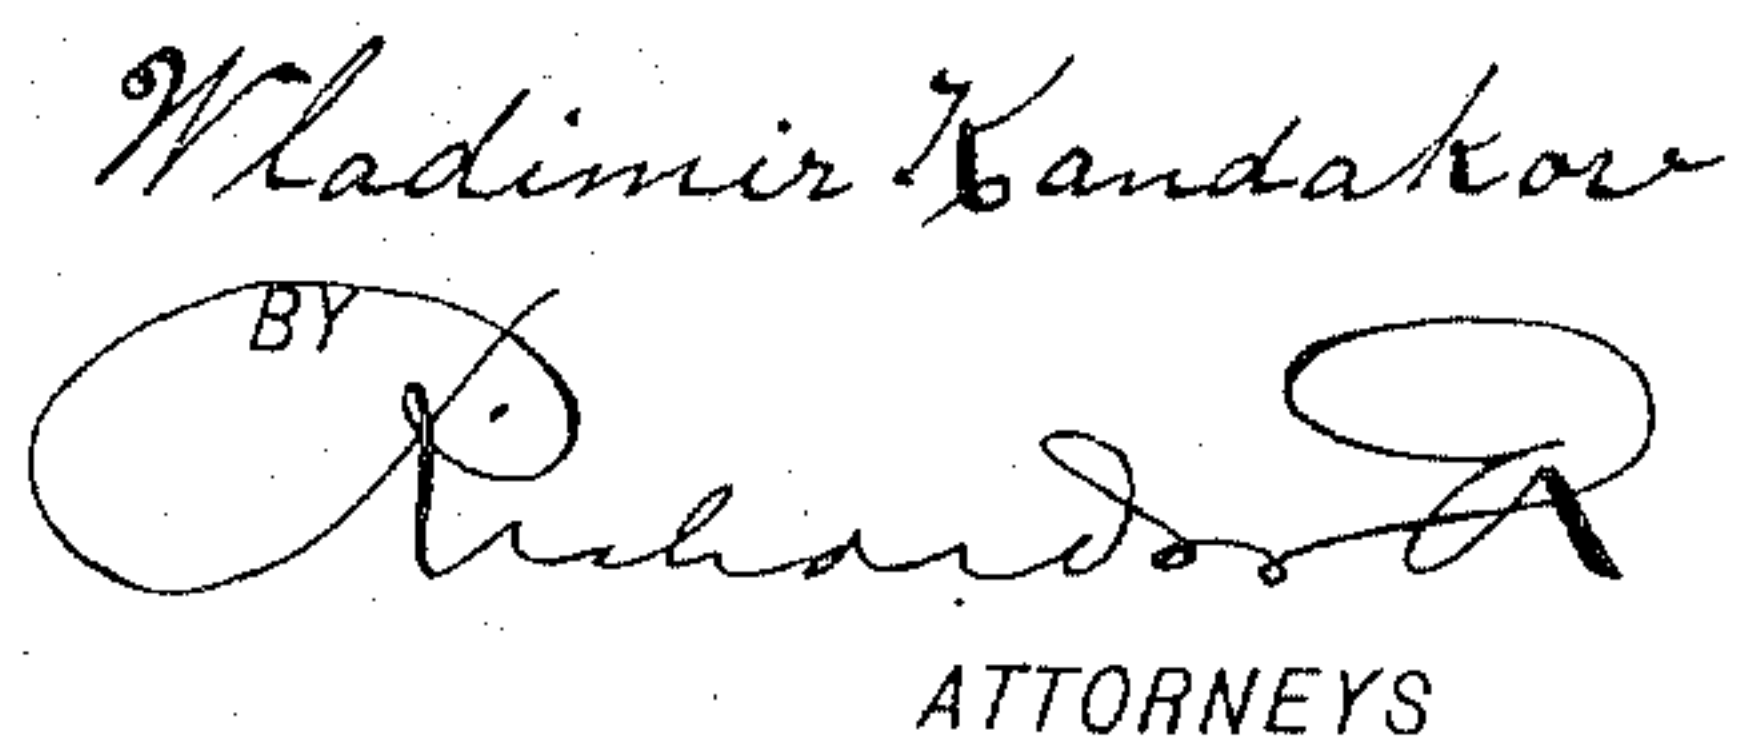 Wladimir Kandakov
BY
Richards
ATTORNEYS